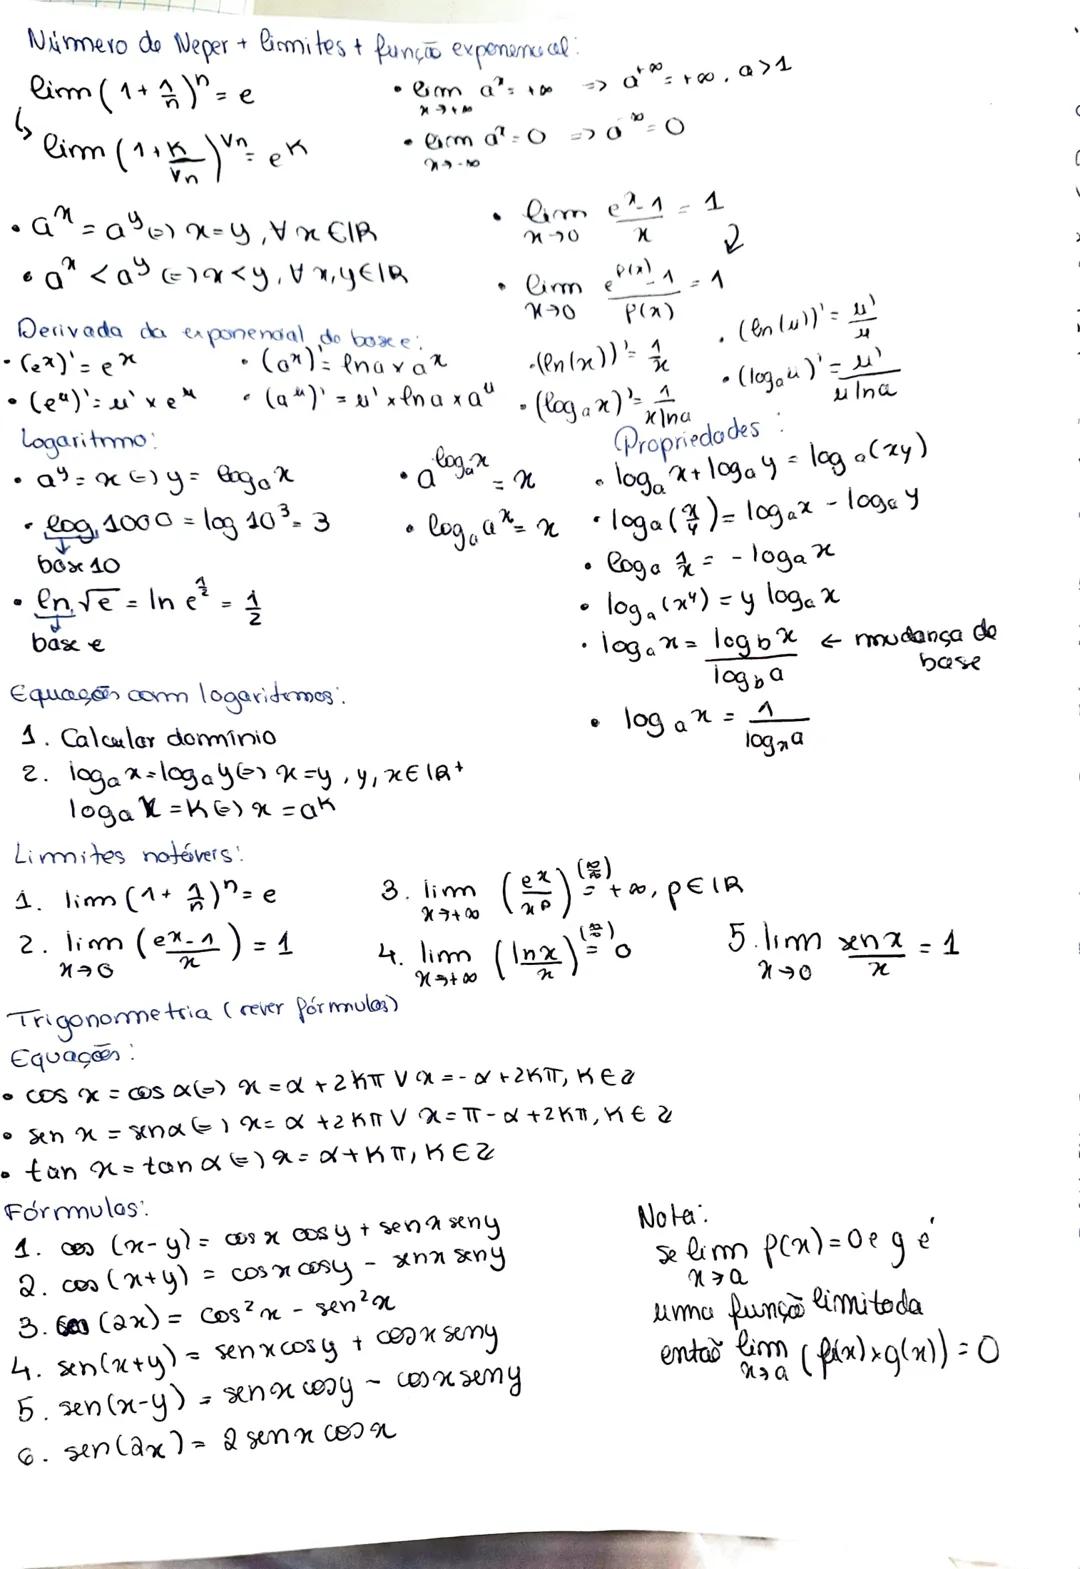 Número de Neper + limites + função exponencial:
lim (1 + 1/n)^n = e
• lim x→+∞ a^x = +∞ => a^+∞ = +∞, a>1
↳ lim (1 + K/Vn)^Vn = e^K
• lim x→-∞ a^x = 0 => a^-∞ = 0
• a^x = a^y (=) x=y, ∀ x ∈ IR
• lim x→0 (e^x - 1)/x = 1
• a^x < a^y (=) x<y, ∀ x,y ∈ IR
• lim x→0 (e^P(x) - 1)/P(x) = 1
Derivada da exponencial de base e:
• (e^x)' = e^x
• (a^x)' = ln a x a^x
• (ln(x))' = 1/x
• (ln(u))' = u'/u
• (e^u)' = u' x e^u
• (a^u)' = u' x ln a x a^u
• (log_a x)' = 1/(x ln a)
• (log_a u)' = u'/(u ln a)
Logaritmo:
• a^y = x (=) y = log_a x
• a^(log_a x) = x
• log 1000 = log 10^3 = 3
base 10
• log_a a^x = x
• ln √e = ln e^(1/2) = 1/2
base e
Propriedades:
• log_a x + log_a y = log_a (xy)
• log_a (x/y) = log_a x - log_a y
• log_a 1/x = - log_a x
• log_a (x^y) = y log_a x
• log_a x = log_b x / log_b a ← mudança de base
• log_a x = 1/log_x a
Equações com logaritmos:
1. Calcular domínio
2. log_a x = log_a y (=) x=y, y, x ∈ IR+
log_a x = K (=) x = a^K
Limites notáveis:
1. lim (1 + 1/n)^n = e
2. lim x→0 ((e^x - 1)/x) = 1
3. lim x→+∞ (e^x/x^p) (∞/∞) = +∞, p ∈ IR
4. lim x→+∞ (ln x/x) (∞/∞) = 0
5. lim x→0 sen x/x = 1
Trigonometria (rever fórmulas)
Equações:
• cos x = cos α (=) x = α + 2Kπ V x = -α + 2Kπ, K ∈ Z
• sen x = sen α (=) x = α + 2Kπ V x = π - α + 2Kπ, K ∈ Z
• tan x = tan α (=) x = α + Kπ, K ∈ Z
Fórmulas:
1. cos (x-y) = cos x cos y + sen x sen y
2. cos (x+y) = cos x cos y - sen x sen y
3. cos (2x) = cos²x - sen²x
4. sen(x+y) = sen x cos y + cos x sen y
5. sen(x-y) = sen x cos y - cos x sen y
6. sen(2x) = 2 sen x cos x
Nota:
se lim x→a f(x) = 0 e g é
uma função limitada
então lim x→a (f(x) x g(x)) = 0